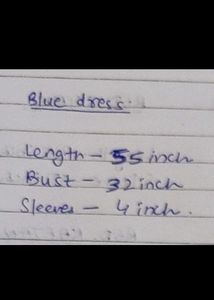 Blue dress.
Length - 55 inch
Bust - 32 inch
Sleeves - 4 inch.